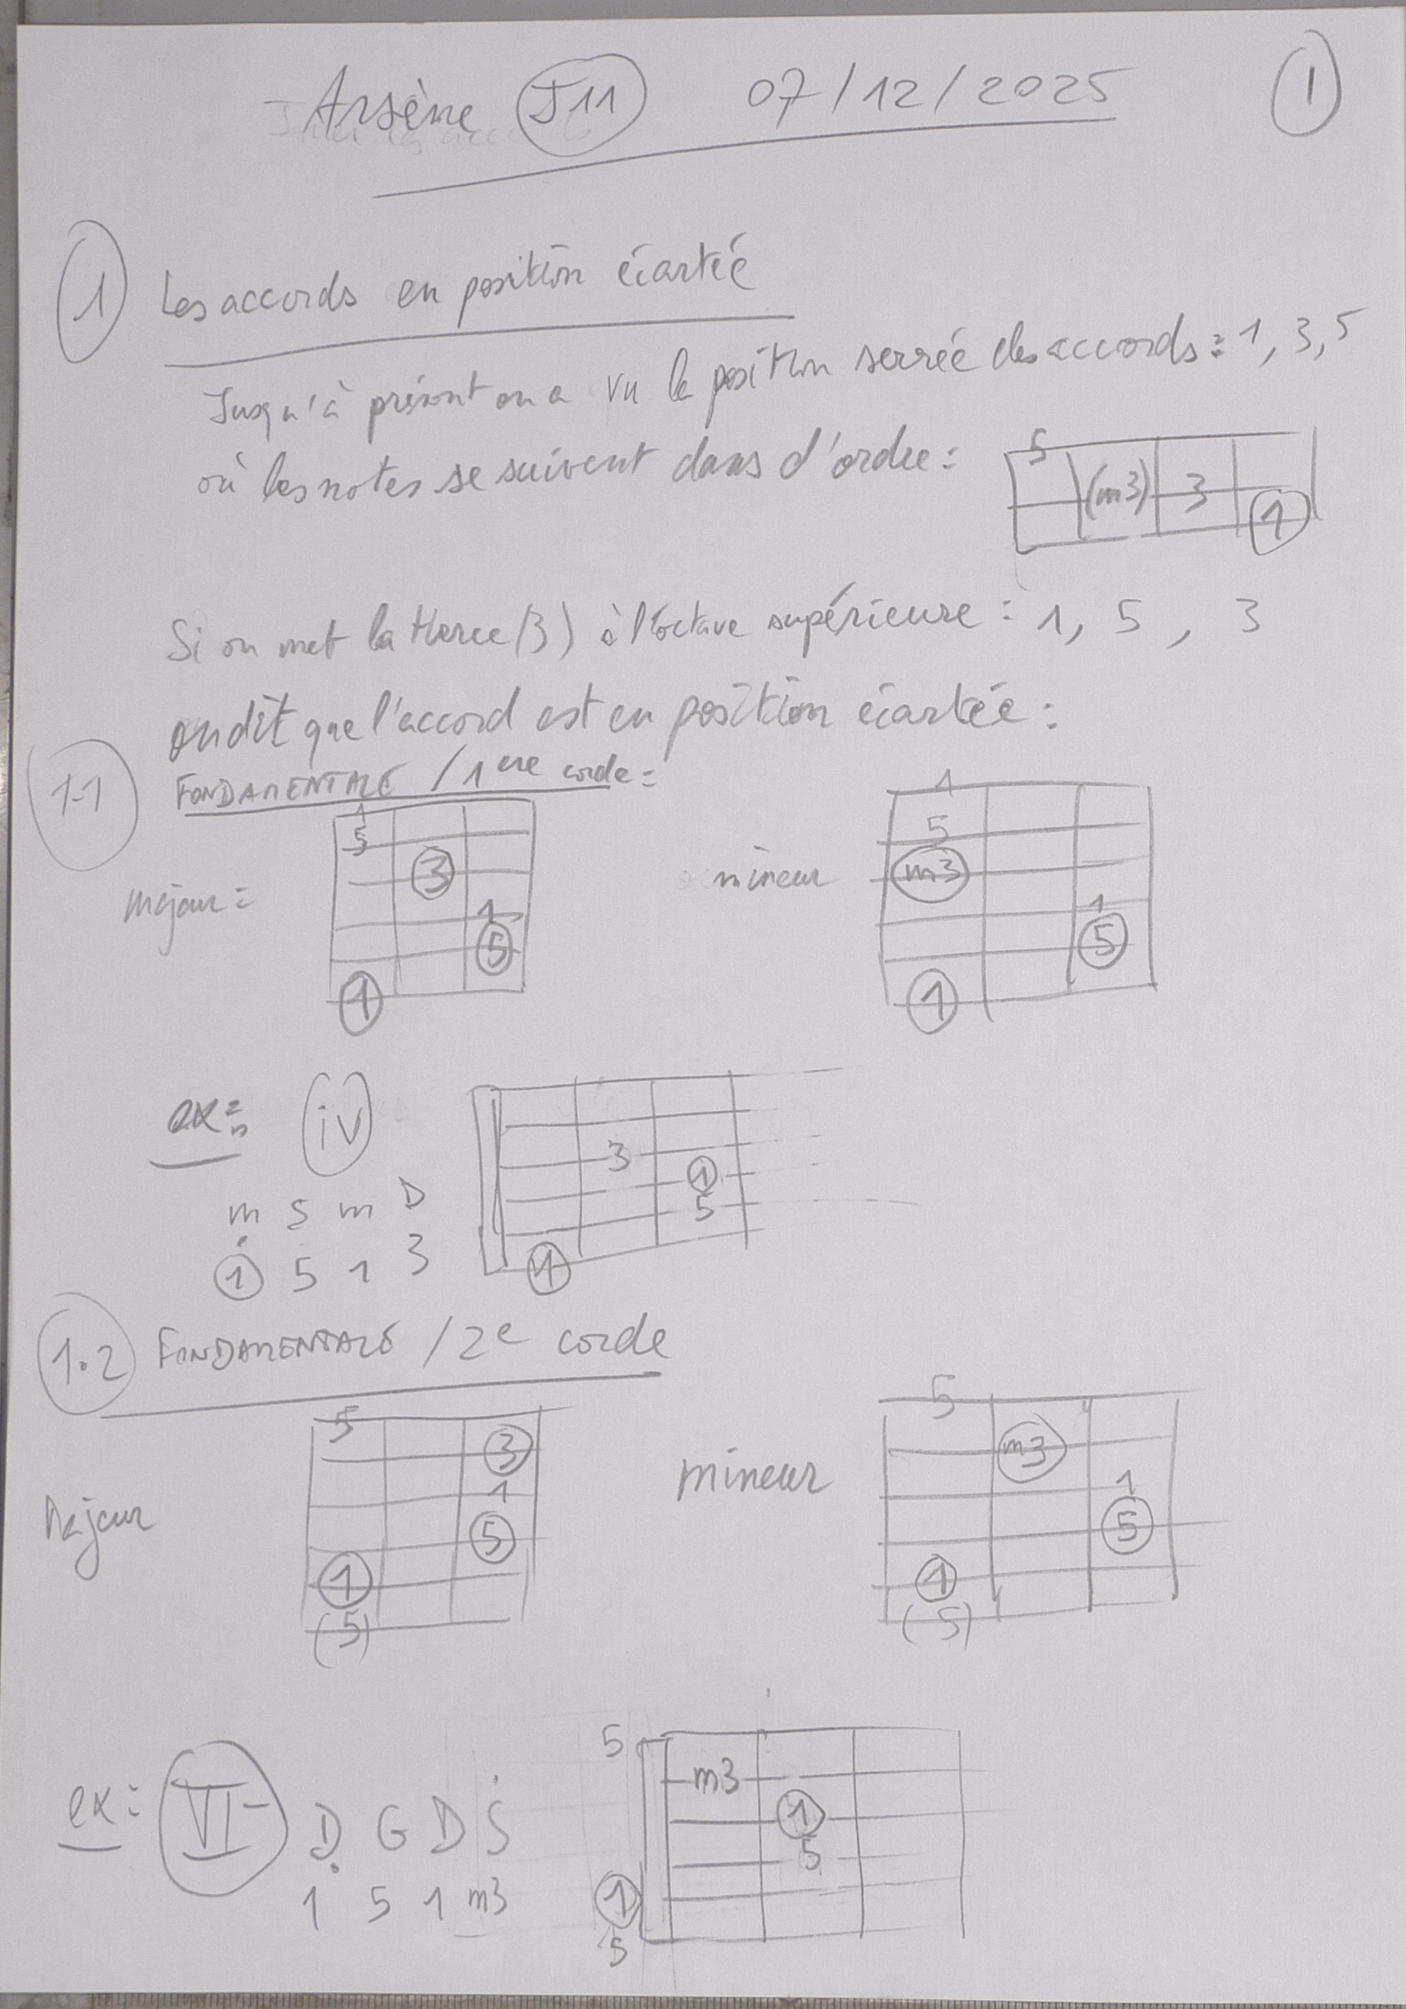 Arsène J11 07/12/2025 1
1 Les accords en position écartée
Jusqu'à présent on a vu la position serrée des accords : 1, 3, 5
où les notes se suivent dans d'ordre :
5
(m3) 3
1
Si on met la tierce (3) à l'octave supérieure : 1, 5, 3
on dit que l'accord est en position écartée :
1-1 FONDAMENTALE / 1ere corde :
majeur :
1
5
3
1
5
1
mineur
1
5
m3
1
5
1
ex : iv
m S m D
1 5 1 3
3
1
5
1
1.2 FONDAMENTALE / 2e corde
Majeur
5
3
1
5
1
(5)
mineur
5
m3
1
5
1
(5)
ex : VI-
D G D S
1 5 1 m3
5
m3
1
5
1
5